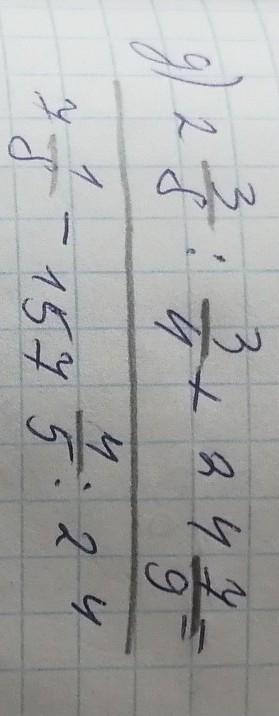 д) 2 3/8 : 3/4 + 24 7/9 =
7 1/8 - 157 4/5 : 24